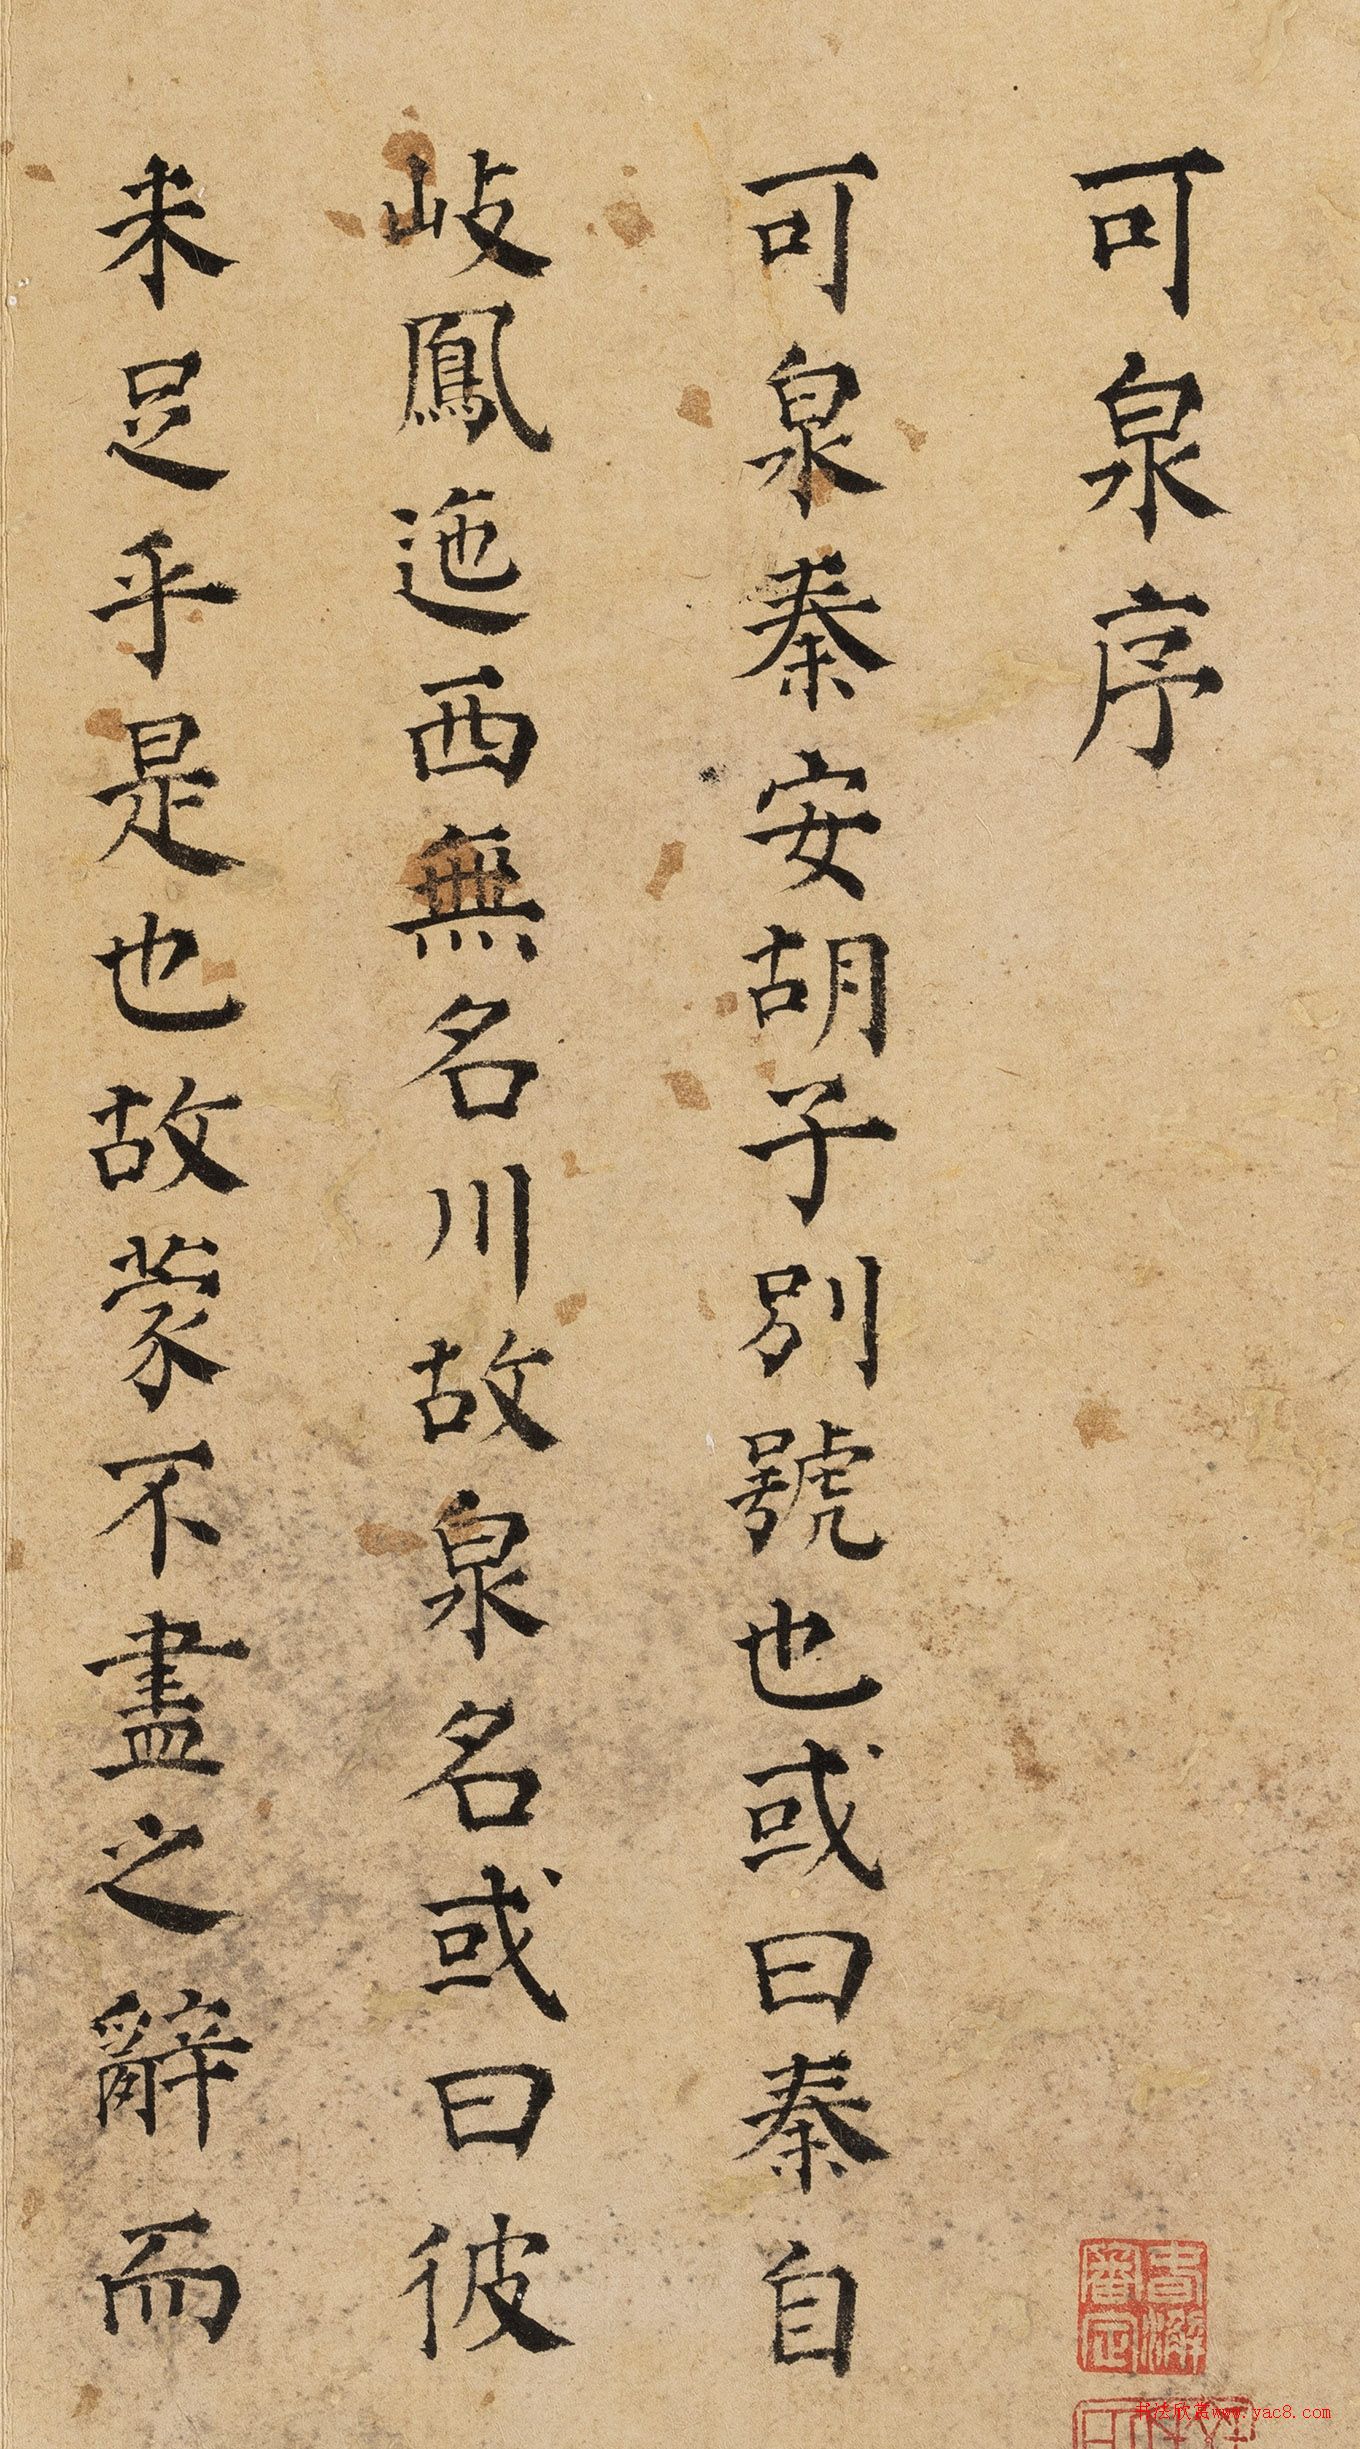 可泉序
可泉秦安胡子別號也或曰秦自
岐鳳迆西無名川故泉名或曰彼
未足乎是也故蒙不盡之辭而
书法欣赏www.yac8.com